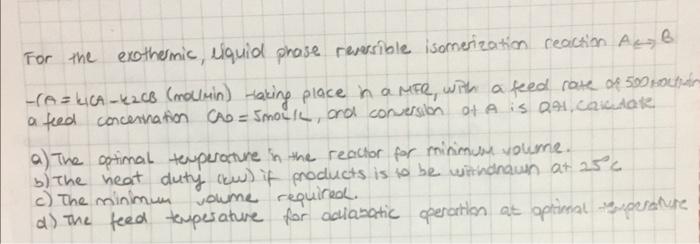 For the exothermic, liquid phase reversible isomerization reaction A↔B
-rA = k1CA - k2CB (mol/min) taking place in a MFR, with a feed rate of 500
a feed concentration CA0 = 5mol/L, and conversion of A is calculate
a) The optimal temperature in the reactor for minimum volume.
b) The heat duty (kW) if products is to be withdrawn at 25°C
c) The minimum volume required.
d) The feed temperature for adiabatic operation at optimal temperature